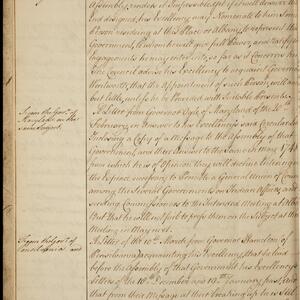 Assembly, renders it Impossible yet if it will answer the
End designed, his Excellency may Nominate him some
Person residing at this Place or Albany to represent that
Government, to whom he will give full Power, and ratify
Engagements he may enter into, so far as it Concerns his
The Council advise his Excellency to acquaint Governor
Wentworth, that the Appointment of such Person, will avail
but little, unless he be Provided with Suitable Presents.
From the Govr. of
Maryland on the
same Subject.
A Letter from Governor Ogle of Maryland of the 20th
February, in Answer to his Excellency's said Circular
Inclosing a Copy of a Message to the Assembly of that
Government, and their Answer to the same
from which he is of Opinion they will decline
the Expence necessary to Promote a General Union of
among the Several Governments on Indian Affairs, and
sending Commissioners to the Intended Meeting at
But that he will not fail to press them on the Subject at the
Meeting in May next.
From the Govr. of
Pensilvania and
A Letter of the 10th March from Governor Hamilton of
Pensilvania acquainting his Excellency, that he laid
before the Assembly of that Government his Excellency's
Letters of the 18th December and 19th January last
that from their Message at their breaking up he is